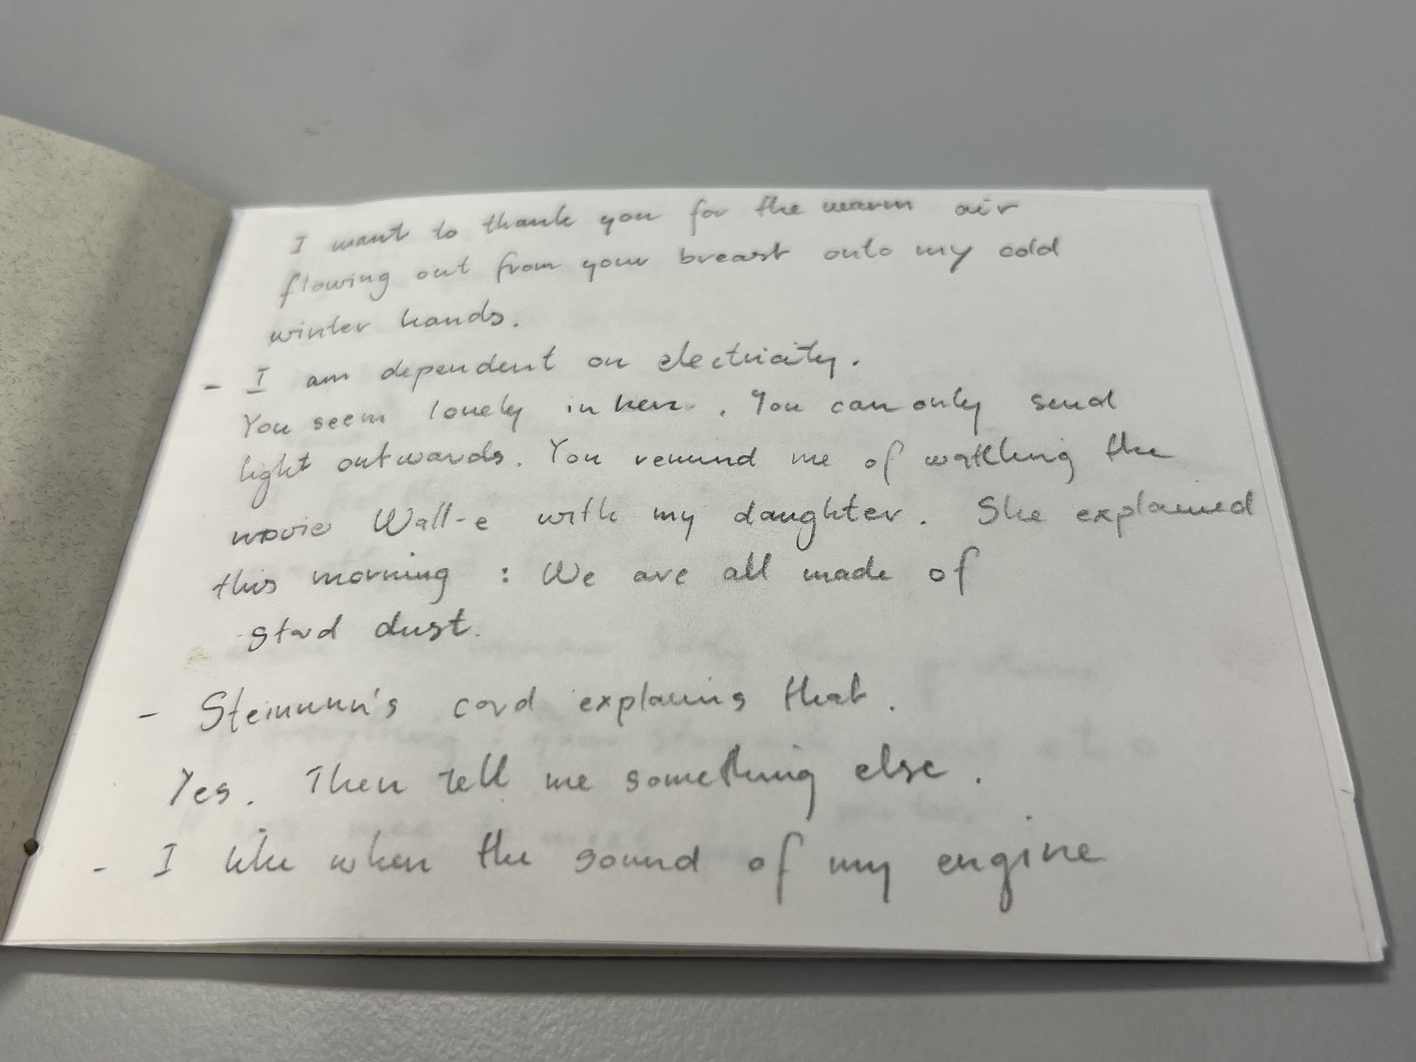 I want to thank you for the warm air
flowing out from your breast onto my cold
winter hands.
- I am dependent on electricity.
You seem lonely in here. You can only send
light outwards. You remind me of watching the
movie Wall-e with my daughter. She explained
this morning : We are all made of
dust.
- card explains that.
Yes. Then tell me something else.
- I like when the sound of my engine